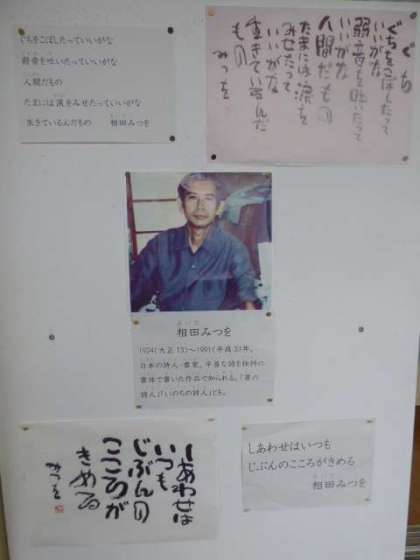 ぐちをこぼしたっていいがな
弱音を吐いたっていいがな
人間だもの
たまには涙をみせたっていいがな
生きているんだもの　相田みつを
ぐち
ぐちをこぼしたって
いいがな
弱音を吐いたって
いいがな
人間だもの
たまには涙を
みせたって
いいがな
生きているんだ
もの
みつを
あいだ
相田みつを
1924(大正13)〜1991(平成3)年。
日本の詩人・書家。平易な詩を独特の
書体で書いた作品で知られる。「書の
詩人」「いのちの詩人」とも。
しあわせは
いつも
じぶんの
こころが
きめる
みつを
しあわせはいつも
じぶんのこころがきめる
あいだ
相田みつを